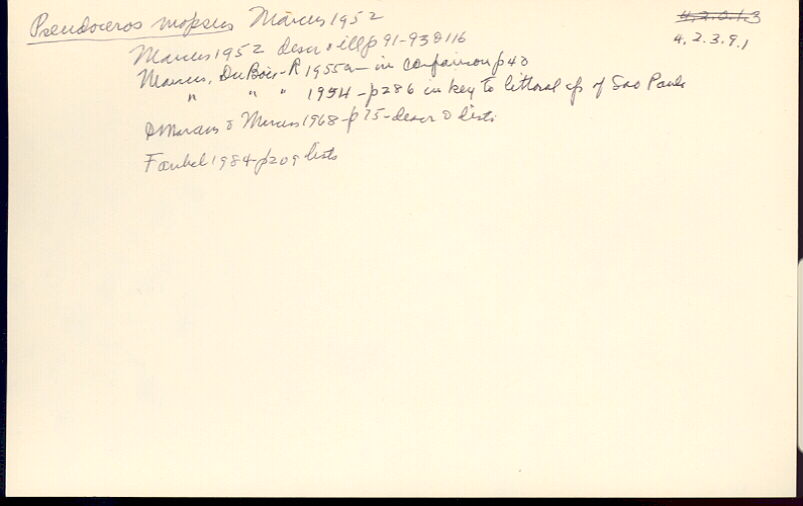 Pseudoceros mopsus Marcus 1952
4.2.0.1.3
4.2.3.9.1
Marcus 1952 descr & ill p 91-93 & 116
Marcus, DuBois-R 1955a - in comparison p 40
" " " 1954 - p 286 in key to littoral sp of Sao Paulo
Marcus & Marcus 1968 - p 75 - descr & distr.
Faubel 1984 - p 209 lists